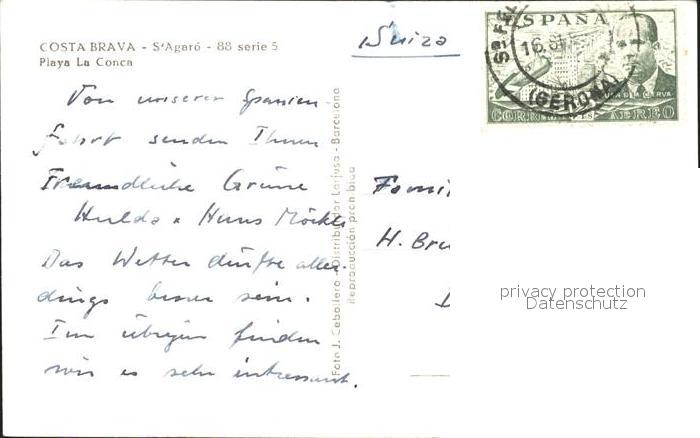 COSTA BRAVA - S'Agaró - 88 serie 5
Playa La Conca
Von unserer Spanien-
fahrt senden Ihnen
Freundliche Grüsse
Hulda & Hans Möckli
Das Wetter dürfte aller-
dings besser sein.
Im übrigen finden
wir es sehr interessant.
Foto J. Cebollero - Distribuidor Lorjusa - Barcelona
Reproducción prohibida
Suiza
ESPAÑA
CORREOS AEREO
(GERONA)
Fami
H. Bru
privacy protection
Datenschutz